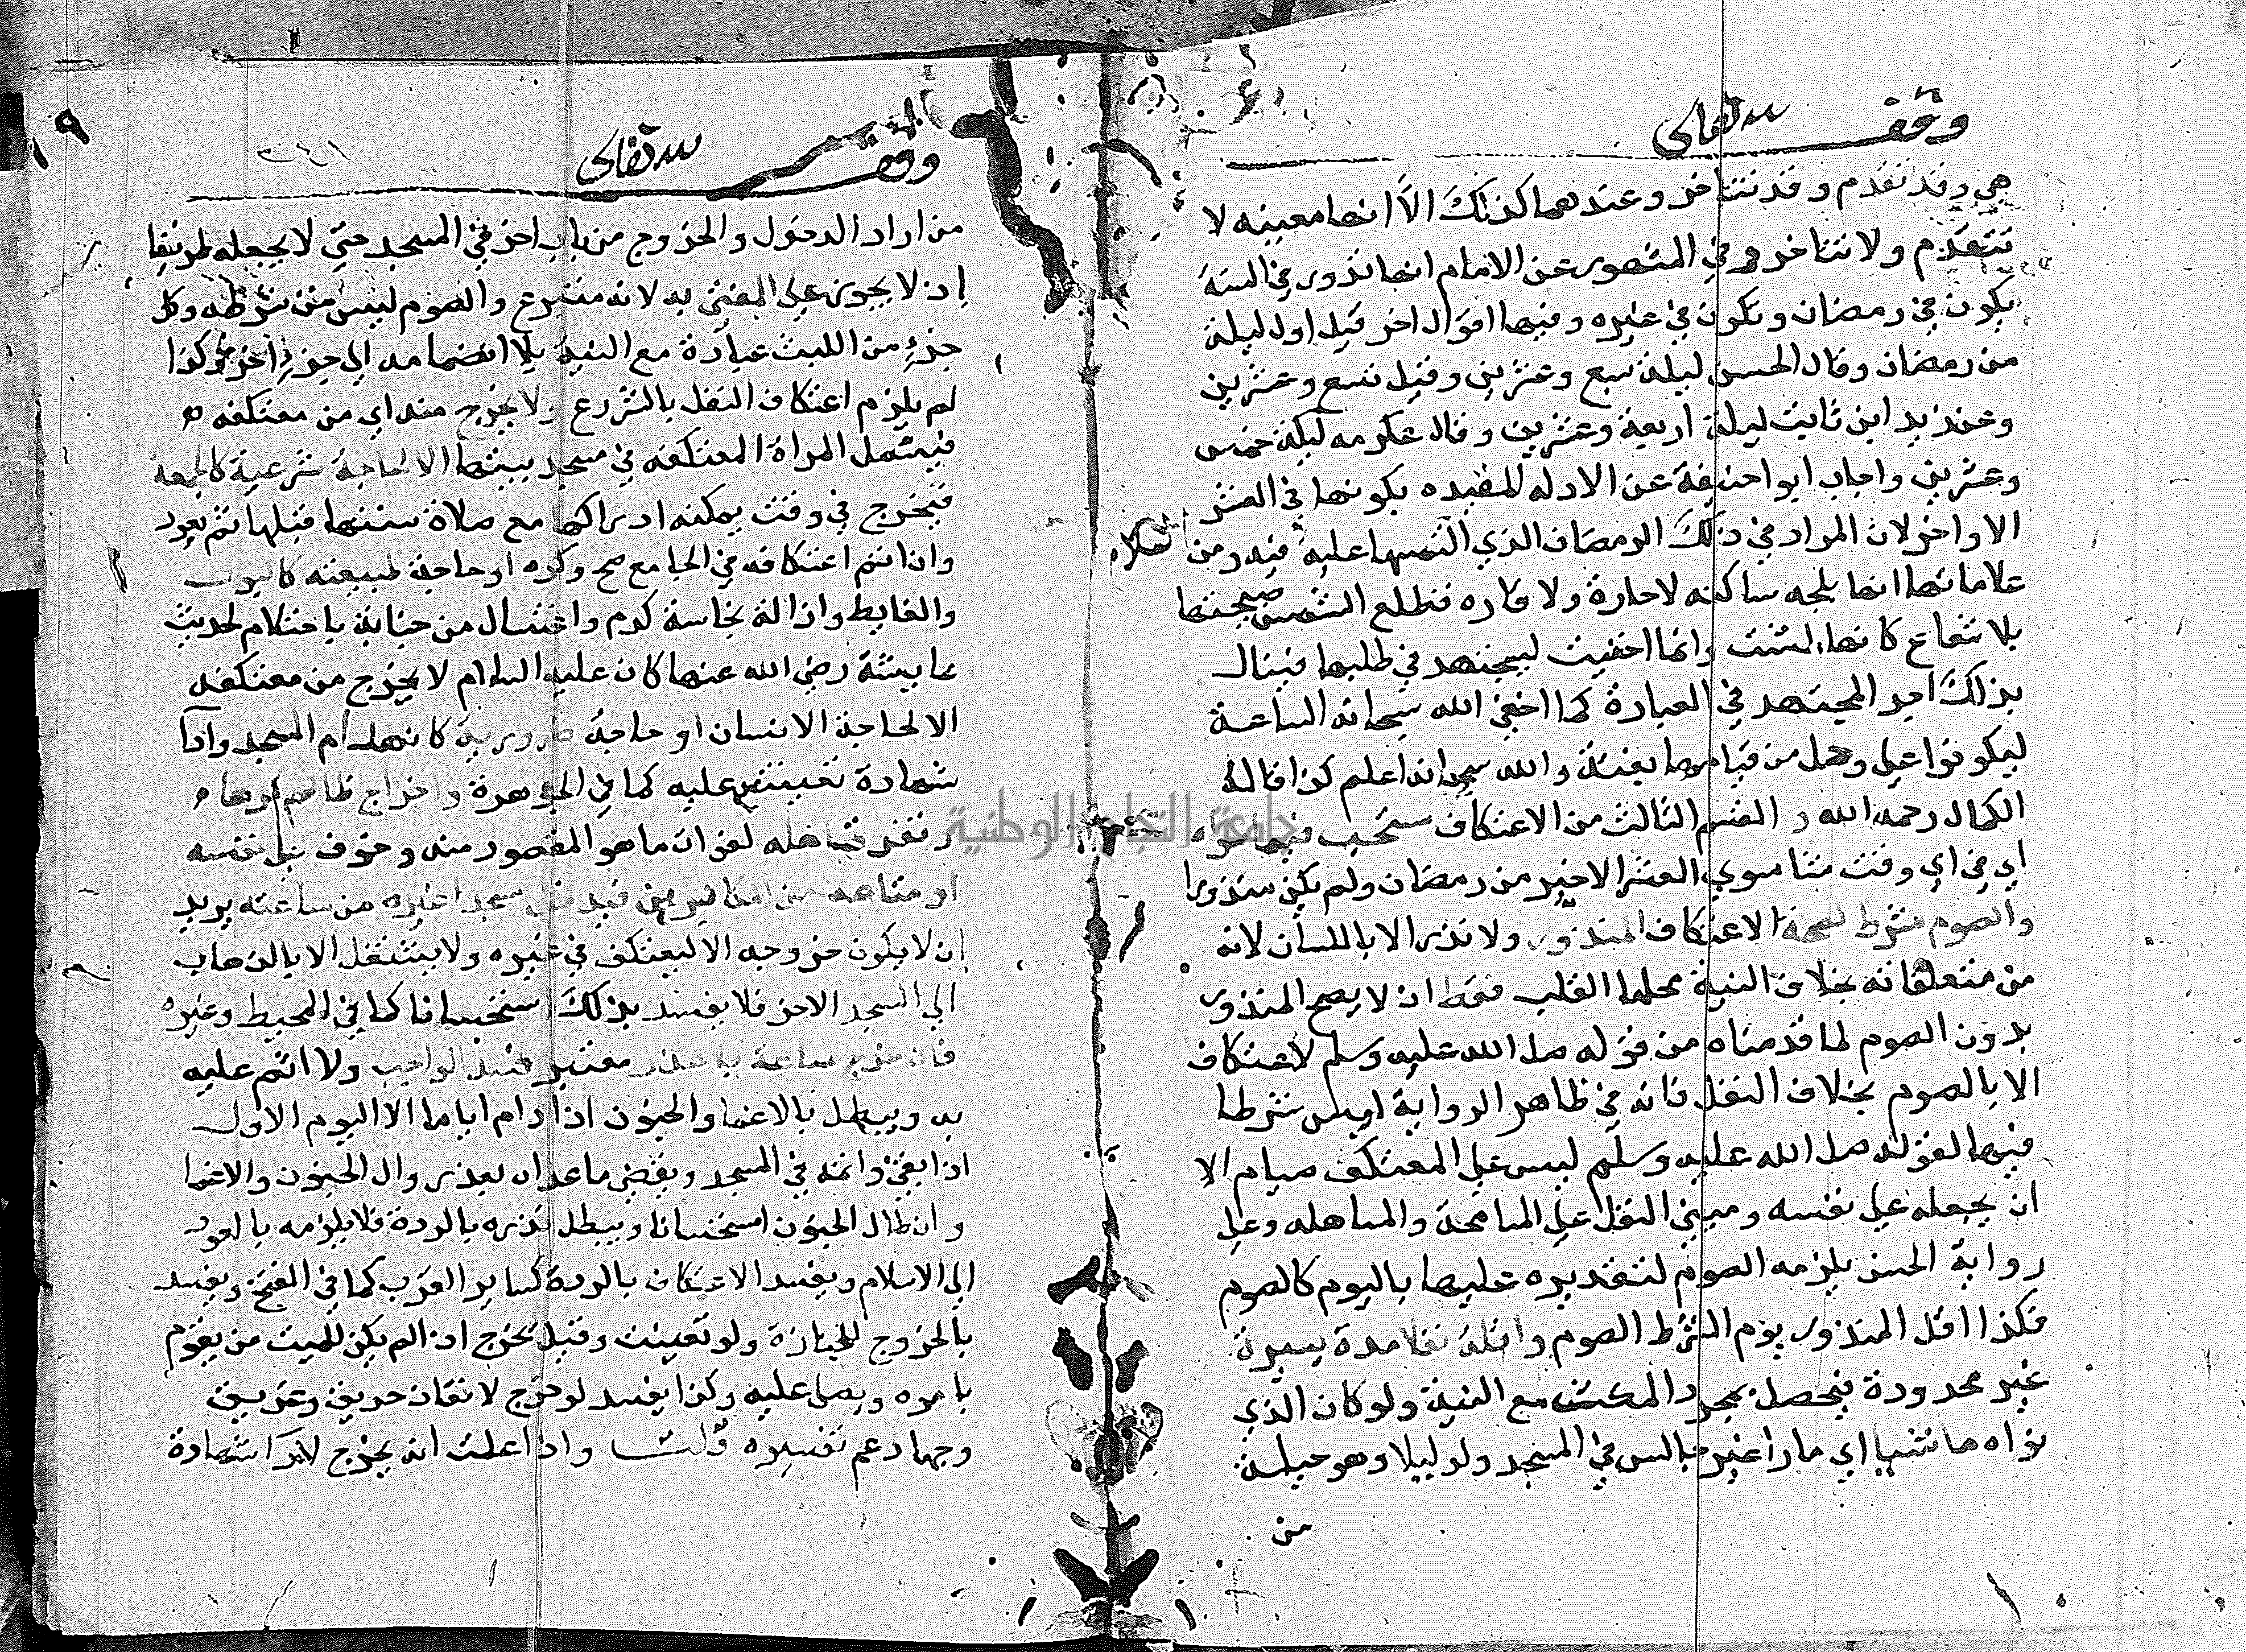 وقف لله تعالى
هي وقد تتقدم وقد تتاخر وعندهما كذلك الا انها معينه لا
تتقدم ولا تتاخر وفي المشهور عن الامام انها تدور في السنة
يكون في رمضان وتكون في غيره وفيها اقوال اخر قيل اول ليلة
من رمضان وقال الحسن ليلة سبع وعشرين وقيل تسع وعشرين
وعن زيد ابن ثابت ليلة اربعة وعشرين وقال عكرمه ليلة خمس
وعشرين واجاب ابوا حنيفة عن الادله المفيده بكونها في العشر
الاواخر لان المراد في ذلك الرمضان الذي التمسها عليه فيه ومن
علاماتها انها بلجه ساكنه لا حارة ولا قاره تطلع الشمس صبيحتها
بلا شعاع كانها طشت وانما اخفيت ليجتهد في طلبها فينال
بذلك اجر المجتهد في العبادة كما اخفي الله سبحانه الساعة
ليكونوا علي وجل من قيامها بغتة والله سبحانه اعلم كذا قاله
الكمال رحمه الله و القسم الثالث من الاعتكاف مستحب فيما سواه
اي في اي وقت شا سوي العشر الاخير من رمضان ولم يكن منذورا
والصوم شرط لصحة الاعتكاف المنذور ولا نذر الا باللسان لانه
من متعلقاته بخلاف النية محلها القلب فقط اذ لا يصح المنذور
بدون الصوم لما قدمناه من قوله صلى الله عليه وسلم لا اعتكاف
الا بالصوم بخلاف النفل فانه في ظاهر الرواية ليس شرطا
فيها لقوله صلى الله عليه وسلم ليس علي المعتكف صيام الا
ان يجعله علي نفسه ومبني النفل علي المسامحة والمساهله وعلي
رواية الحسن يلزمه الصوم لتقديره عليها باليوم كالصوم
فكذا اقل المنذور يوم الشرط الصوم واقله نفلا مدة يسيرة
غير محدودة فيحصل بمجرد المكث مع النية ولو كان الذي
نواه ماشيا اي مارا غير جالس في المسجد ولو ليلا وهو حيلة
من
وقف لله تعالى
من اراد الدخول والخروج من باب اخر في المسجد حتي لا يجعله طريقا
اذ لا يجوز علي المفتي به لانه متبرع والصوم ليس من شرطه وكل
جزء من اللبث عبادة مع النية بلا انضمامه الي جزء اخر وكذا
لم يلزم اعتكاف النفل بالشروع ولا يخرج منه اي من معتكفه
فيشمل المراة المعتكفه في مسجد بيتها الا لحاجة شرعية كالجمعة
فيخرج في وقت يمكنه ادراكها مع صلاة سنتها قبلها ثم يعود
وان اتم اعتكافه في الجامع صح وكره او حاجة طبيعته كالبول
والغايط وازالة نجاسة كدم واغتسال من جنابة باحتلام لحديث
عايشة رضي الله عنها كان عليه السلام لا يخرج من معتكفه
الا لحاجة الانسان او حاجة ضرورية كانهدام المسجد واداء
شهادة تعينت عليه كما في الجوهرة واخراج ظالم كرها
وتفرق اهله لفوات ما هو المقصود منه وخوف علي نفسه
او متاعه من المكابرين فيدخل مسجدا غيره من ساعته يريد
ان لا يكون خروجه الا ليعتكف في غيره ولا يشتغل الا بالذهاب
الي المسجد الاخر فلا يفسد بذلك استحسانا كما في المحيط وغيره
فان خرج ساعة بلا عذر معتبر فسد الواجب ولا اثم عليه
به ويبطل بالاغما والجنون اذا دام اياما الا اليوم الاول
اذا بقي واتمه في المسجد ويقضي ما عداه بعد زوال الجنون والاغما
وان طال الجنون استحسانا ويبطل نذره بالردة فلا يلزمه بالعود
الي الاسلام ويفسد الاعتكاف بالردة كساير القرب كما في الفتح ويفسد
بالخروج للجنازة ولو تعينت وقيل يخرج اذا لم يكن للميت من يقوم
بامره ويصلى عليه وكذا يفسد لو خرج لانقاذ حريق وغريق
وجهاد عم نفيره قلت واذا علمت انه يخرج لادا شهادة